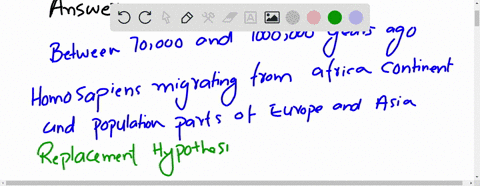 Answe
Between 70,000 and 1000,000 years ago
Homo Sapiens migrating from africa continent
and population parts of Europe and Asia
Replacement Hypothesi